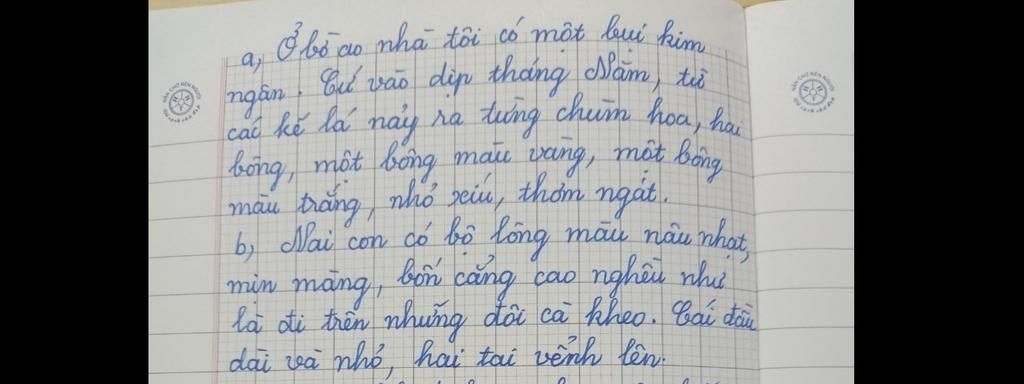 a, Ở bờ ao nhà tôi có một bụi kim
ngân. Cứ vào dịp tháng Năm, từ
các kẽ lá nảy ra từng chùm hoa, hai
bông, một bông màu vàng, một bông
màu trắng, nhỏ xíu, thơm ngát.
b, Nai con có bộ lông màu nâu nhạt,
mịn màng, bốn cẳng cao nghêu như
là đi trên những đôi cà kheo. Cái đầu
dài và nhỏ, hai tai vểnh lên.